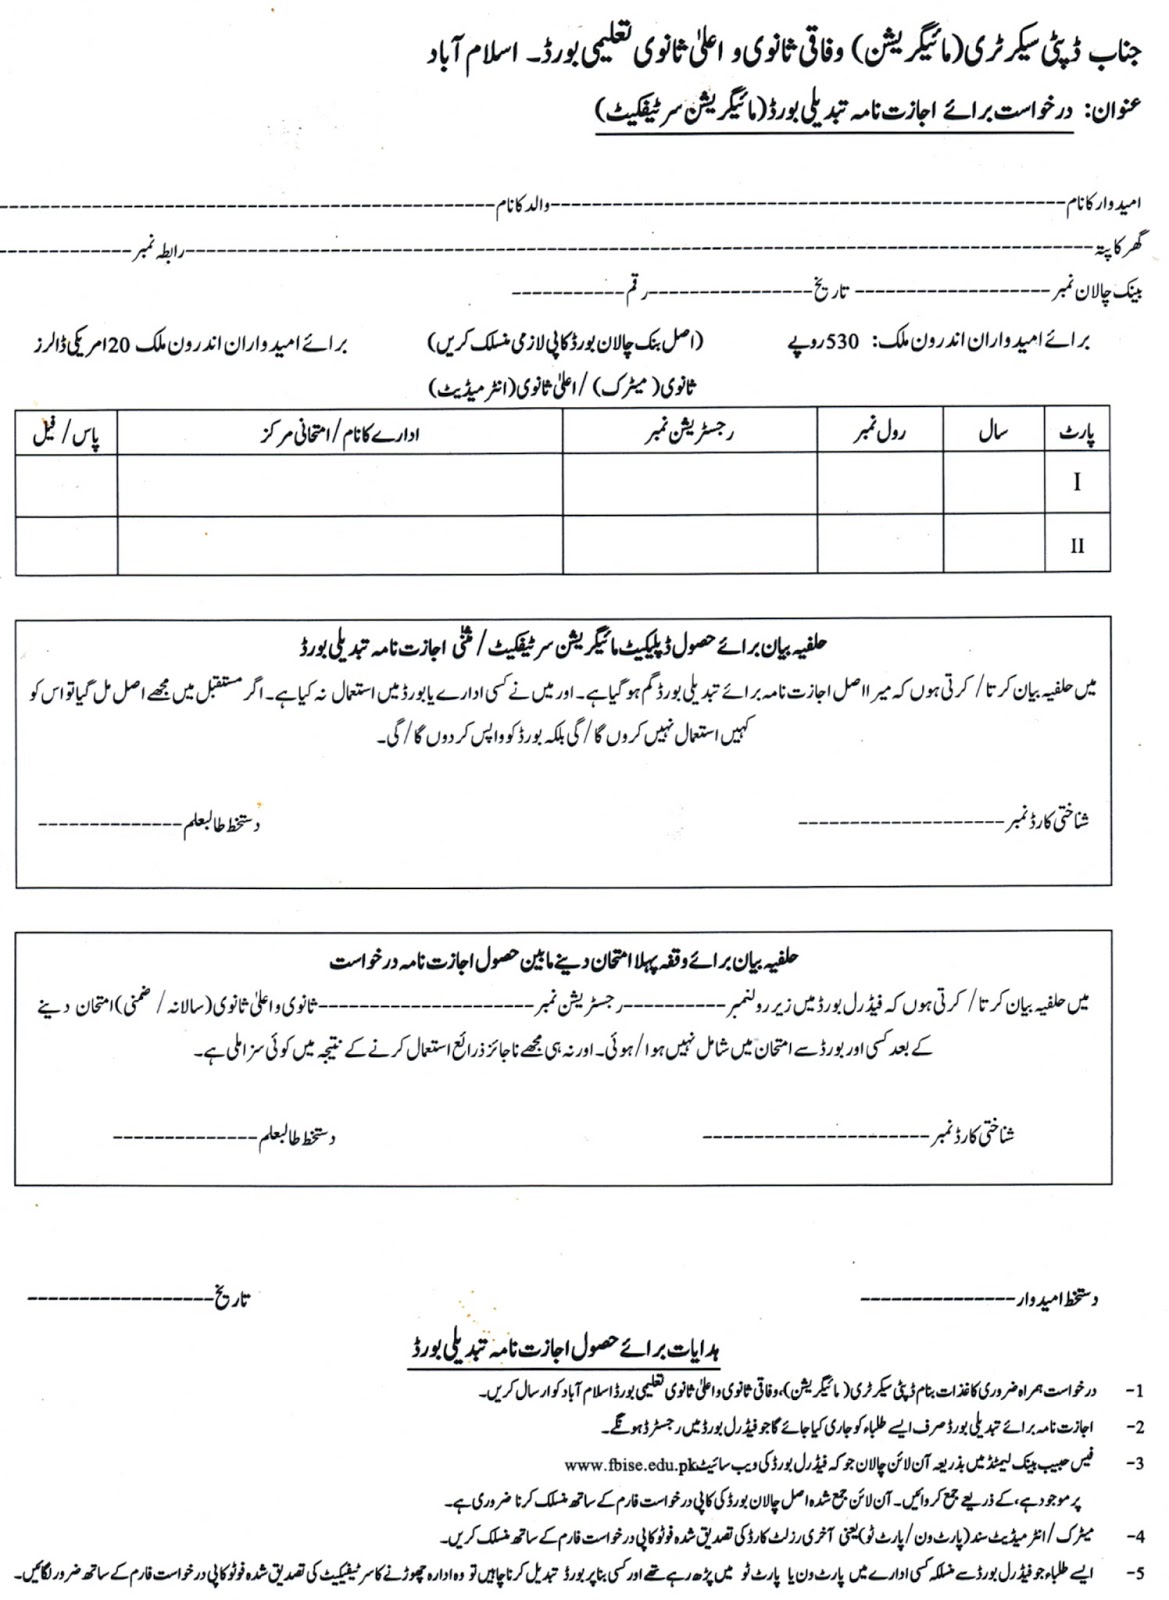 جناب ڈپٹی سیکرٹری (مائیگریشن) وفاقی ثانوی و اعلیٰ ثانوی تعلیمی بورڈ۔ اسلام آباد
عنوان: درخواست برائے اجازت نامہ تبدیلی بورڈ (مائیگریشن سرٹیفکیٹ)
امیدوار کا نام-------------------------والد کا نام-------------------------
گھر کا پتہ-------------------------رابطہ نمبر-------------
بینک چالان نمبر-------------------- تاریخ----------------رقم-----------
برائے امیدواران اندرون ملک: 530 روپے (اصل بنک چالان بورڈ کاپی لازمی منسلک کریں) برائے امیدواران اندرون ملک 20 امریکی ڈالرز
ثانوی (میٹرک) / اعلیٰ ثانوی (انٹرمیڈیٹ)
پارٹ سال رول نمبر رجسٹریشن نمبر ادارے کا نام / امتحانی مرکز پاس / فیل
I
II
حلفیہ بیان برائے حصول ڈپلیکیٹ مائیگریشن سرٹیفکیٹ / مثنٰی اجازت نامہ تبدیلی بورڈ
میں حلفیہ بیان کرتا / کرتی ہوں کہ میرا اصل اجازت نامہ برائے تبدیلی بورڈ گم ہو گیا ہے۔ اور میں نے کسی ادارے یا بورڈ میں استعمال نہ کیا ہے۔ اگر مستقبل میں مجھے اصل مل گیا تو اس کو
کہیں استعمال نہیں کروں گا / گی بلکہ بورڈ کو واپس کر دوں گا / گی۔
شناختی کارڈ نمبر-------------------- دستخط طالبعلم--------------
حلفیہ بیان برائے وقفہ پہلا امتحان دینے مابین حصول اجازت نامہ درخواست
میں حلفیہ بیان کرتا / کرتی ہوں کہ فیڈرل بورڈ میں زیر رولنمبر----------رجسٹریشن نمبر---------------------ثانوی و اعلیٰ ثانوی (سالانہ / ضمنی) امتحان دینے
کے بعد کسی اور بورڈ سے امتحان میں شامل نہیں ہوا / ہوئی۔ اور نہ ہی مجھے ناجائز ذرائع استعمال کرنے کے نتیجہ میں کوئی سزا ملی ہے۔
شناختی کارڈ نمبر---------------------- دستخط طالبعلم--------------
دستخط امیدوار--------------- تاریخ------------------
ہدایات برائے حصول اجازت نامہ تبدیلی بورڈ
1- درخواست ہمراہ ضروری کاغذات بنام ڈپٹی سیکرٹری (مائیگریشن)، وفاقی ثانوی و اعلیٰ ثانوی تعلیمی بورڈ اسلام آباد کو ارسال کریں۔
2- اجازت نامہ برائے تبدیلی بورڈ صرف ایسے طلباء کو جاری کیا جائے گا جو فیڈرل بورڈ میں رجسٹرڈ ہونگے۔
3- فیس حبیب بینک لیمٹڈ میں بذریعہ آن لائن چالان جو کہ فیڈرل بورڈ کی ویب سائیٹ www.fbise.edu.pk
پر موجود ہے، کے ذریعے جمع کروائیں۔ آن لائن جمع شدہ اصل چالان بورڈ کی کاپی درخواست فارم کے ساتھ منسلک کرنا ضروری ہے۔
4- میٹرک / انٹرمیڈیٹ سند (پارٹ ون / پارٹ ٹو) یعنی آخری رزلٹ کارڈ کی تصدیق شدہ فوٹو کاپی درخواست فارم کے ساتھ منسلک کریں۔
5- ایسے طلباء جو فیڈرل بورڈ سے منسلکہ کسی ادارے میں پارٹ ون یا پارٹ ٹو میں پڑھ رہے تھے اور کسی بنا پر بورڈ تبدیل کرنا چاہیں تو وہ ادارہ چھوڑنے کا سرٹیفیکیٹ کی تصدیق شدہ فوٹو کاپی درخواست فارم کے ساتھ ضرور لگائیں۔